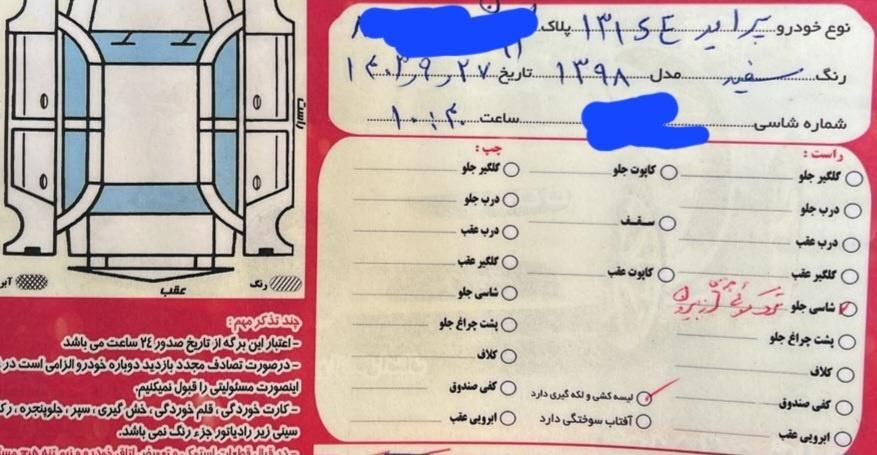 نوع خودرو پراید ۱۳۱ SE پلاک
رنگ سفید مدل ۱۳۹۸ تاریخ ۱۴۰۳٫۹٫۲۷
شماره شاسی ساعت ۱۰:۴۰
راست :
گلگیر جلو
درب جلو
درب عقب
گلگیر عقب
شاسی جلو
پشت چراغ جلو
کلاف
کفی صندوق
ابرویی عقب
کاپوت جلو
سقف
کاپوت عقب
لیسه کشی و لکه گیری دارد
آفتاب سوختگی دارد
چپ :
گلگیر جلو
درب جلو
درب عقب
گلگیر عقب
شاسی جلو
پشت چراغ جلو
کلاف
کفی صندوق
ابرویی عقب
راست
عقب
رنگ
چند تذکر مهم :
- اعتبار این برگه از تاریخ صدور ۲٤ ساعت می باشد
- درصورت تصادف مجدد بازدید دوباره خودرو الزامی است در
اینصورت مسئولیتی را قبول نمیکنیم.
- کارت خوردگی ، قلم خوردگی ، خش گیری ، سپر ، جلوپنجره ،
سینی زیر رادیاتور جزء رنگ نمی باشد.